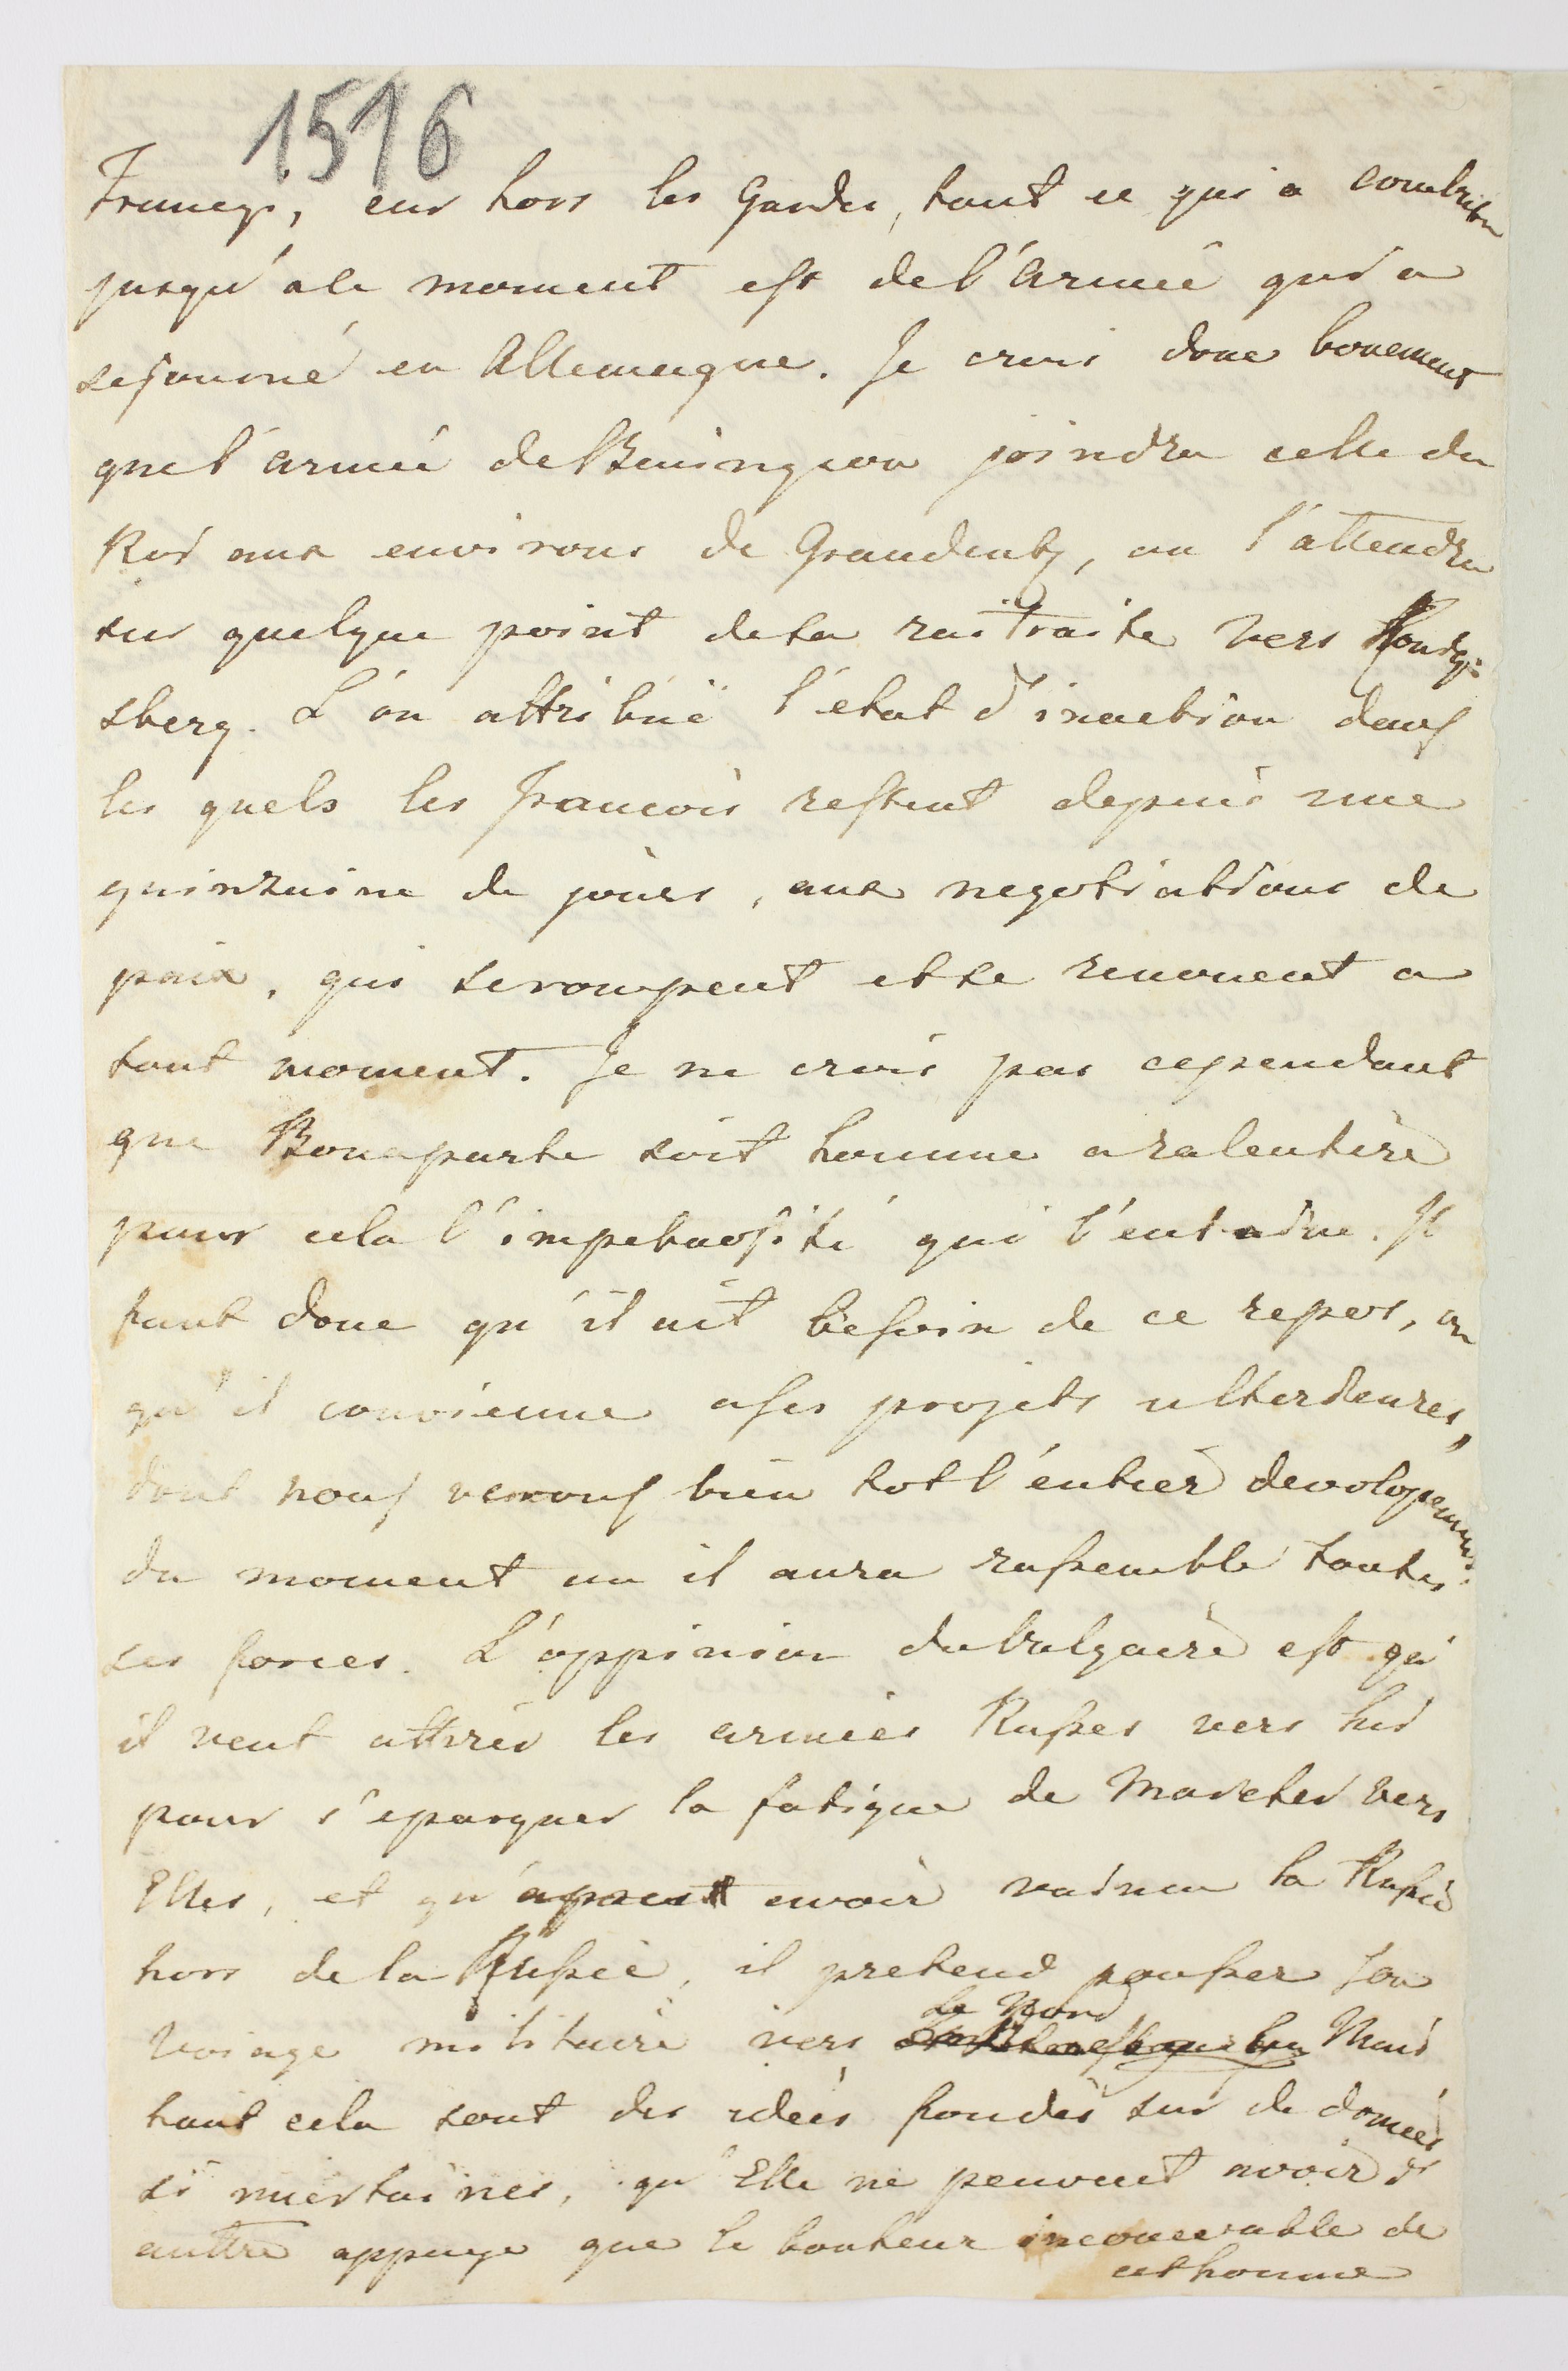 1516
Francs, eur hors les Gardes, tout ce qui a combattu
jusqu'à le moment est de l'armeé qui a
sejourné en Allemagne. Je crois donc bonement
que l'armeé de Beningson joindra celle du
Roi aux environs de Graudentz, ou l'attendra
sur quelque point de sa raitraite vers Konigs:
sberg. L'on attribuë l'etat d'inaction dans
les quels les Francois restent depuis une
quinzaine de jours, aux negotiations de
paix, qui se rompent et se renouent a
tout moment. Je ne crois pas cependant
que Bonaparte soit homme a ralentire
pour cela l'impetuosité qui l'entraine. Il
faut donc qu'il ait besoin de ce repos, ou
qu'il convienne a ses projets ulterieures,
dont nous verrons bien tot l'entier devolopement
du moment ou il aura rassemble toutes
ses forces. L'oppinion du vulgaire est qu'
il veut attirer les armeés Russes vers lui
pour s'epargner la fatigue de marcher vers
Elles, et qu'apres avoir vaincu la Russie
hors de la Russie, il pretend pousser son
voiage militaire vers le Nord Mais
tout cela sont des ideés fondeés sur de donneés
si incertaines, qu'Elle ne peuvent avoir d'
auttre appuye que le bonheur inconcevable de
cet homme